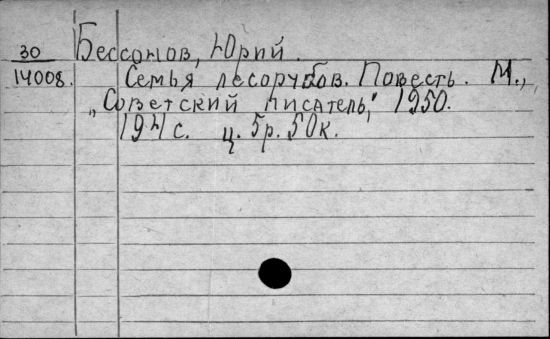 30 Бессонов, Юрий.
14008. Семья лесорубов. Повесть. М.,
„Советский писатель," 1950.
с. ц. 5р. 50к.